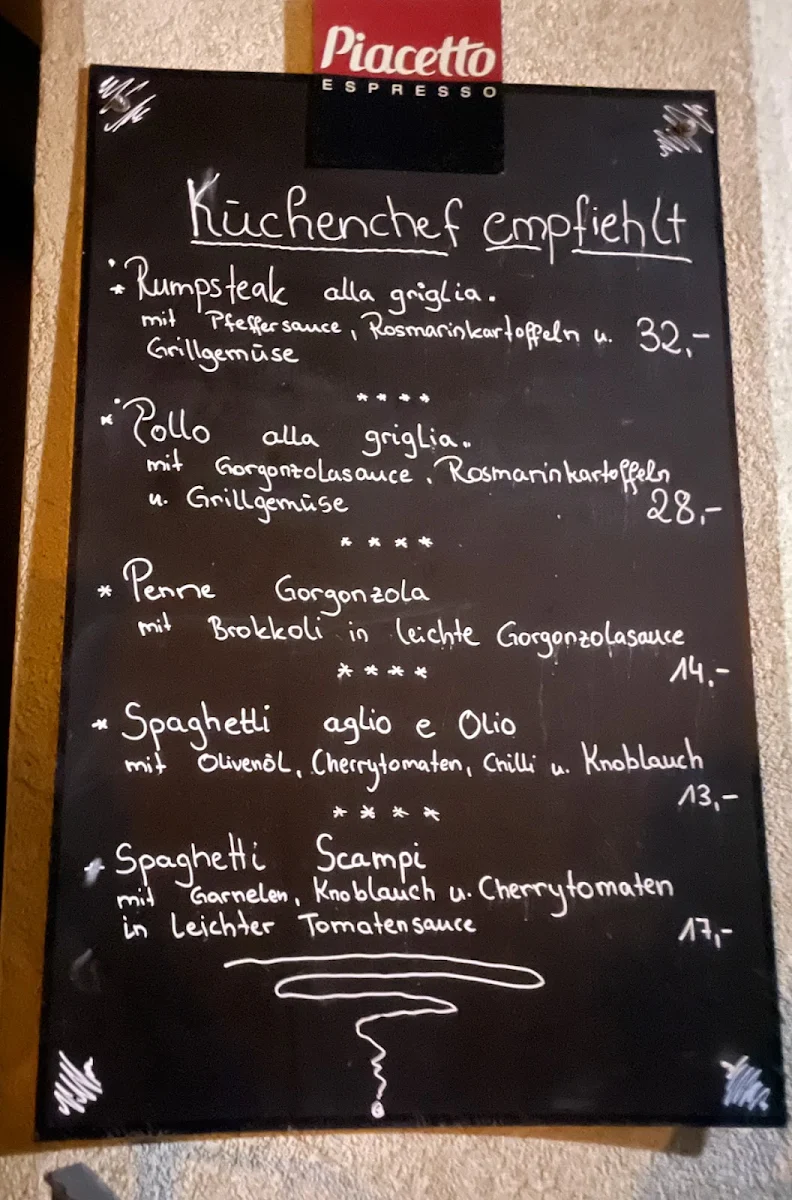 Piacetto
ESPRESSO
Küchenchef empfiehlt
* Rumpsteak alla griglia.
mit Pfeffersauce, Rosmarinkartoffeln u. 32,-
Grillgemüse
* * * *
* Pollo alla griglia.
mit Gorgonzolasauce, Rosmarinkartoffeln
u. Grillgemüse 28,-
* * * *
* Penne Gorgonzola
mit Brokkoli in leichte Gorgonzolasauce
14,-
* * * *
* Spaghetti aglio e Olio
mit Olivenöl, Cherrytomaten, Chilli u. Knoblauch
13,-
* * * *
* Spaghetti Scampi
mit Garnelen, Knoblauch u. Cherrytomaten
in Leichter Tomatensauce 17,-